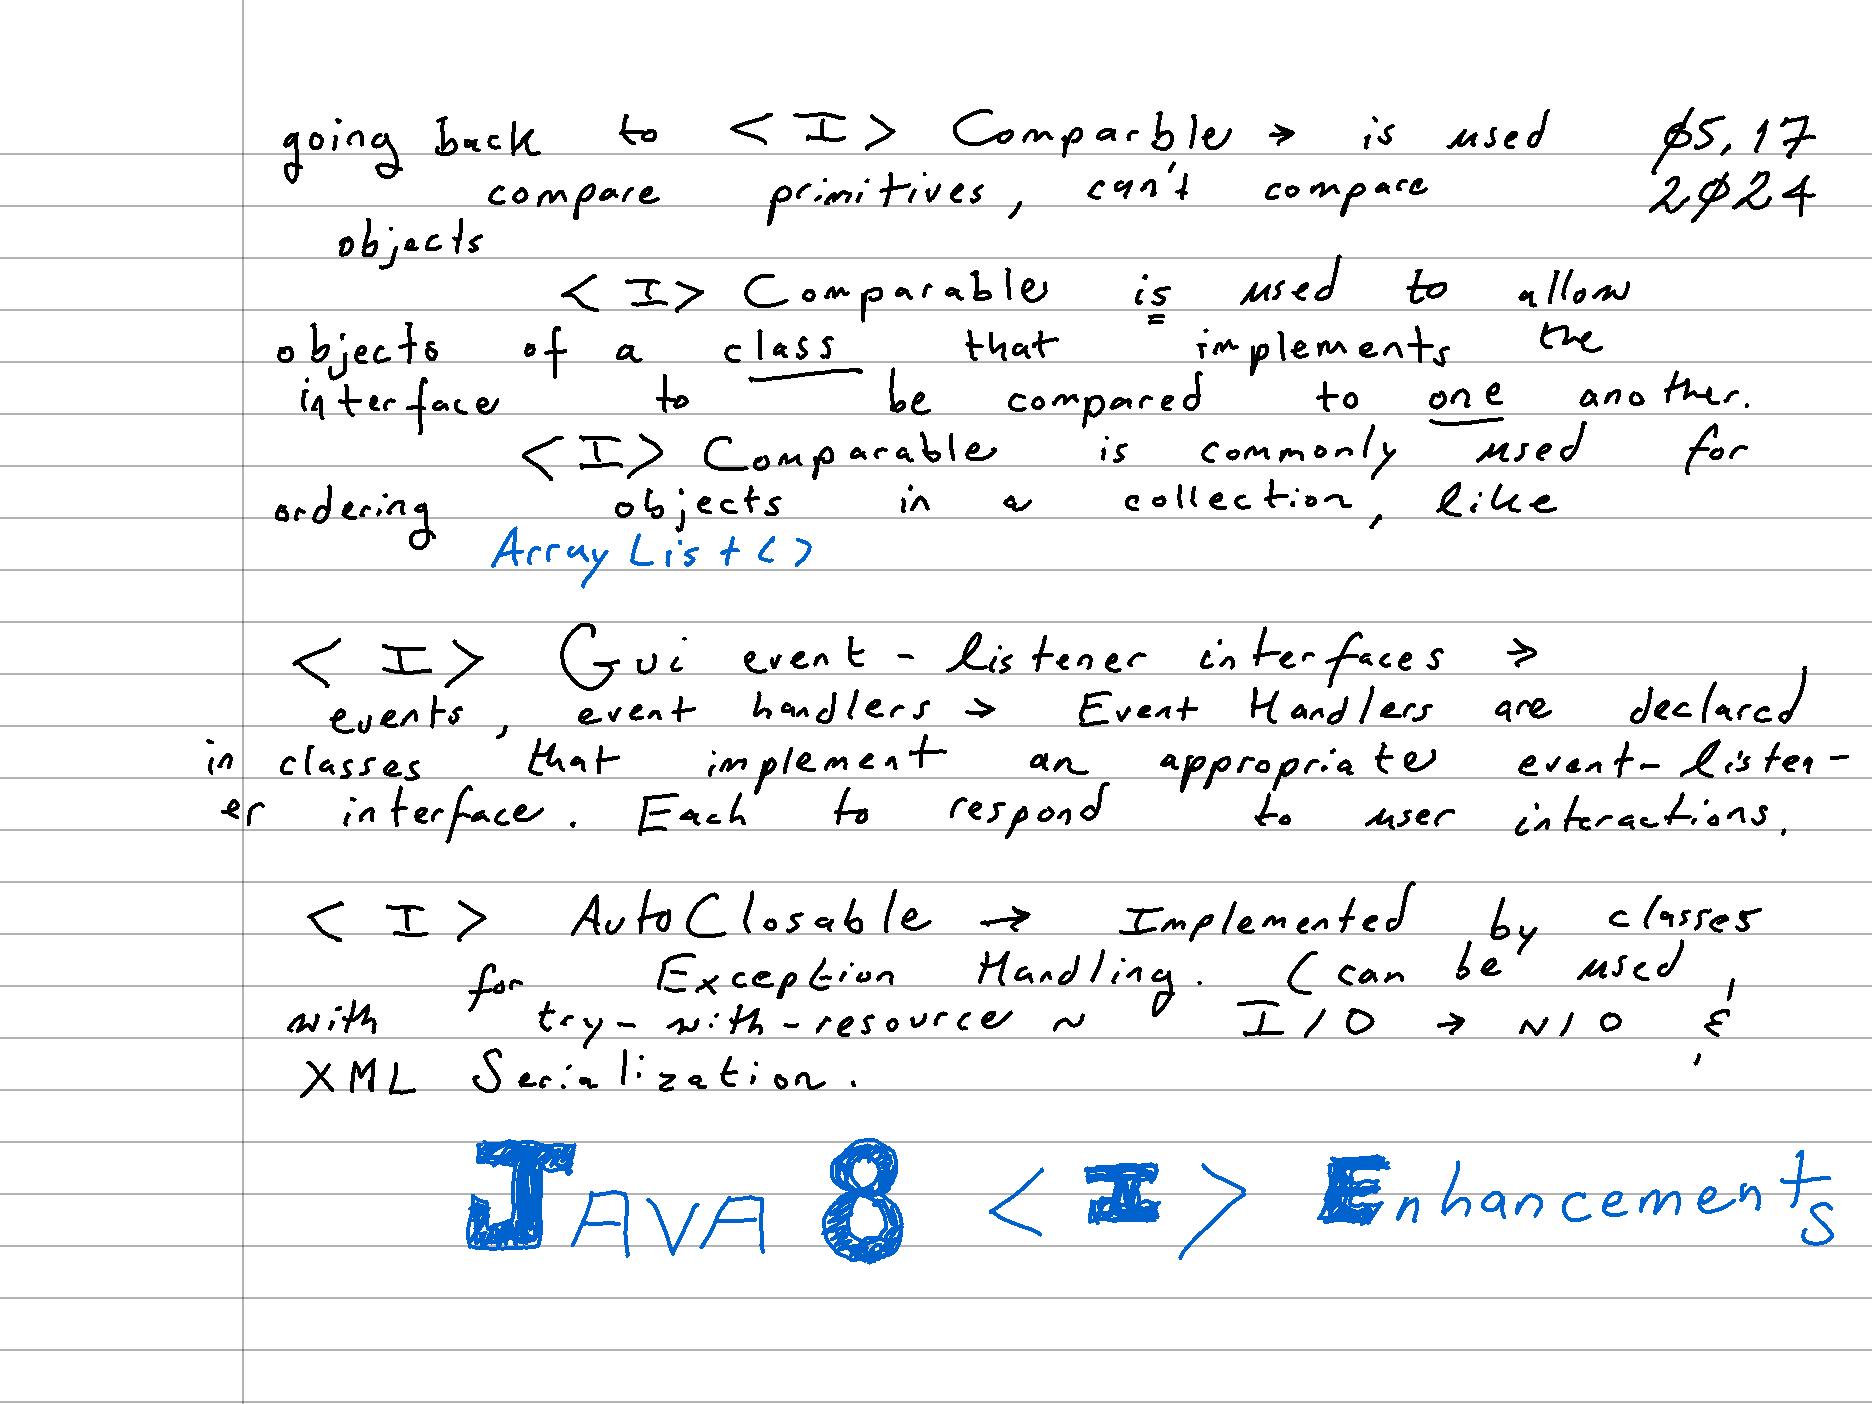 going back to <I> Comparble → is used ø5,17
compare primitives, can't compare 2ø24
objects
<I> Comparable is used to allow
objects of a class that implements the
interface to be compared to one another.
<I> Comparable is commonly used for
ordering objects in a collection, like
ArrayList<>
<I> Gui event-listener interfaces →
events, event handlers → Event Handlers are declared
in classes that implement an appropriate event-listen-
er interface. Each to respond to user interactions.
<I> AutoClosable → Implemented by classes
for Exception Handling. (can be used
with try-with-resource ~ I/O → N/O &
XML Serialization.
JAVA 8 <I> Enhancements